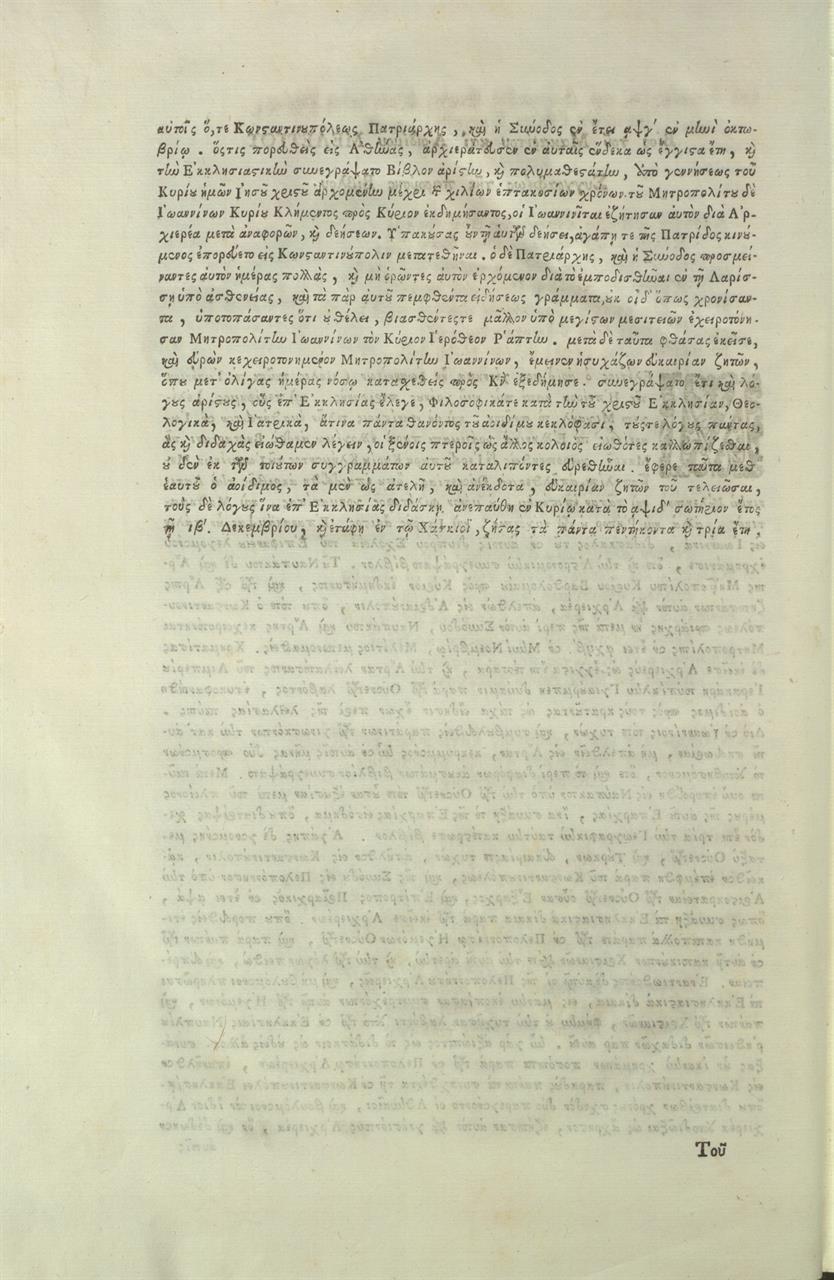 αὐτοῖς ὅ,τε Κωνσταντινουπόλεως Πατριάρχης, καὶ ἡ Σύνοδος ἐν ἔτει αψγʹ ἐν μηνὶ ὀκτω-
βρίῳ. ὅςτις πορευθεὶς εἰς Ἀθήνας, ἀρχιεράτευσεν ἐν αὐταῖς ἕνδεκα ὡς ἔγγιστα ἔτη, καὶ
τὴν Ἐκκλησιαστικὴν συνεγράψατο Βίβλον ἀρίστην, καὶ πολυμαθεστάτην, ἀπὸ γεννήσεως τοῦ
Κυρίου ἡμῶν Ἰησοῦ χριστοῦ ἀρχομένην μέχρι τῶν χιλίων ἑπτακοσίων χρόνων. τοῦ Μητροπολίτου δὲ
Ἰωαννίνων Κυρίου Κλήμεντος πρὸς Κύριον ἐκδημήσαντος, οἱ Ἰωαννῖται ἐζήτησαν αὐτὸν διὰ Ἀρ-
χιερέα μετὰ ἀναφορῶν, καὶ δεήσεων. Ὑπακούσας οὖν τῇ αὐτῶν δεήσει, ἀγάπῃ τε τῆς Πατρίδος κινού-
μενος ἐπορεύετο εἰς Κωνσταντινούπολιν μετατεθῆναι. ὁ δὲ Πατριάρχης, καὶ ἡ Σύνοδος προσμεί-
ναντες αὐτὸν ἡμέρας πολλὰς, καὶ μὴ ὁρῶντες αὐτὸν ἐρχόμενον διὰ τὸ ἐμποδισθῆναι ἐν τῇ Λαρίσ-
σῃ ὑπὸ ἀσθενείας, καὶ τὰ παρ αὐτοῦ πεμφθέντα εἰδήσεως γράμματα, οὐκ οἶδ ὅπως χρονίσαν-
τα, ὑποτοπάσαντες ὅτι οὐ θέλει, βιασθέντες τε μᾶλλον ὑπὸ μεγίστων μεσιτειῶν ἐχειροτόνη-
σαν Μητροπολίτην Ἰωαννίνων τὸν Κύριον Ἱερόθεον Ῥάπτην. μετὰ δὲ ταῦτα φθάσας ἐκεῖσε,
καὶ εὑρὼν κεχειροτονημένον Μητροπολίτην Ἰωαννίνων, ἔμεινεν ἡσυχάζων εὐκαιρίαν ζητῶν,
ὅπου μετ᾽ ὀλίγας ἡμέρας νόσῳ κατασχεθεὶς πρὸς Κν ἐξεδήμησε. συνεγράψατο ἔτι καὶ λό-
γους ἀρίστους, οὓς ἐπ᾽ Ἐκκλησίας ἔλεγε, Φιλοσοφικά τε κατὰ τὴν τοῦ χριστοῦ Ἐκκλησίαν, Θεο-
λογικὰ, καὶ Ἰατρικὰ, ἅτινα πάντα θανόντος τοῦ ἀοιδίμου κεκλόφασι, τούςτε λόγους πάντας,
ἃς καὶ διδαχὰς εἰώθαμεν λέγειν, οἱ ξένοις πτεροῖς ὡς ἄλλος κολοιὸς εἰωθότες καλλωπίζεσθαι,
οὐδὲν ἐκ τῶν τοιούτων συγγραμμάτων αὐτοῦ καταλιπόντες εὑρεθῆναι. ἔφερε ταῦτα μεθ
ἑαυτοῦ ὁ ἀοίδιμος, τὰ μὲν ὡς ἀτελῆ, καὶ ἀνέκδοτα, εὐκαιρίαν ζητῶν τοῦ τελειῶσαι,
τοὺς δὲ λόγους ἵνα ἐπ᾽ Ἐκκλησίας διδάσκῃ. ἀνεπαύθη ἐν Κυρίῳ κατὰ τὸ αψιδʹ σωτήριον ἔτος
τῇ ιβʹ. Δεκεμβρίου, καὶ ἐτάφη ἐν τῷ Χάσκιοϊ, ζήσας τὰ πάντα πεντήκοντα καὶ τρία ἔτη.
Τοῦ